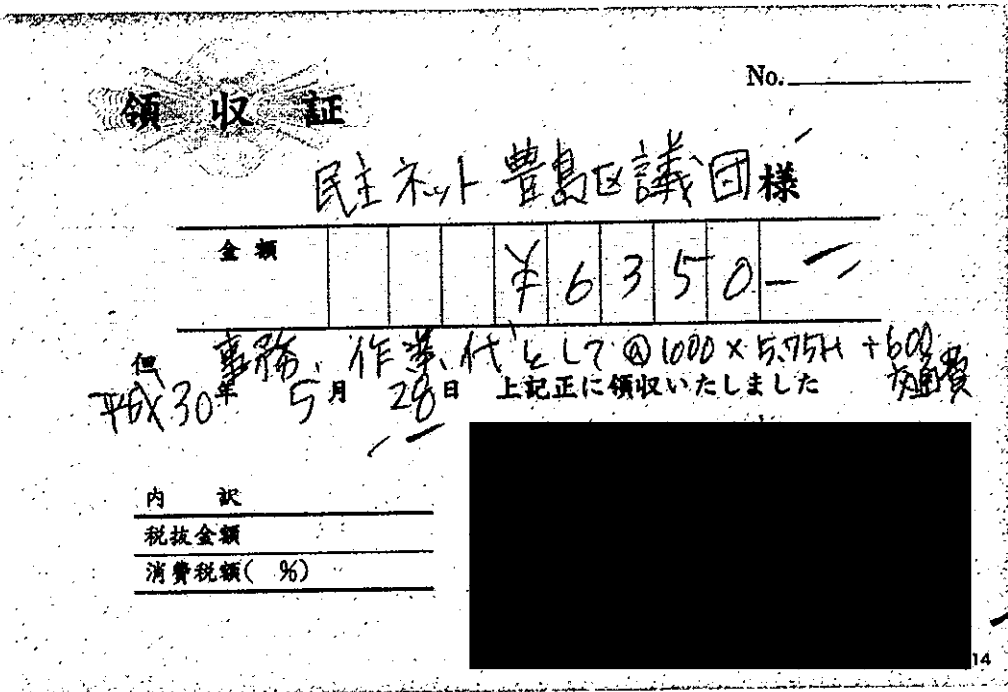 No.
領収証
民主ネット豊島区議団様
金額 ¥6350-
但 事務、作業代として @1000×5.75H+600 交通費
平成30年 5月 28日 上記正に領収いたしました
内 訳
税抜金額
消費税額( %)
14